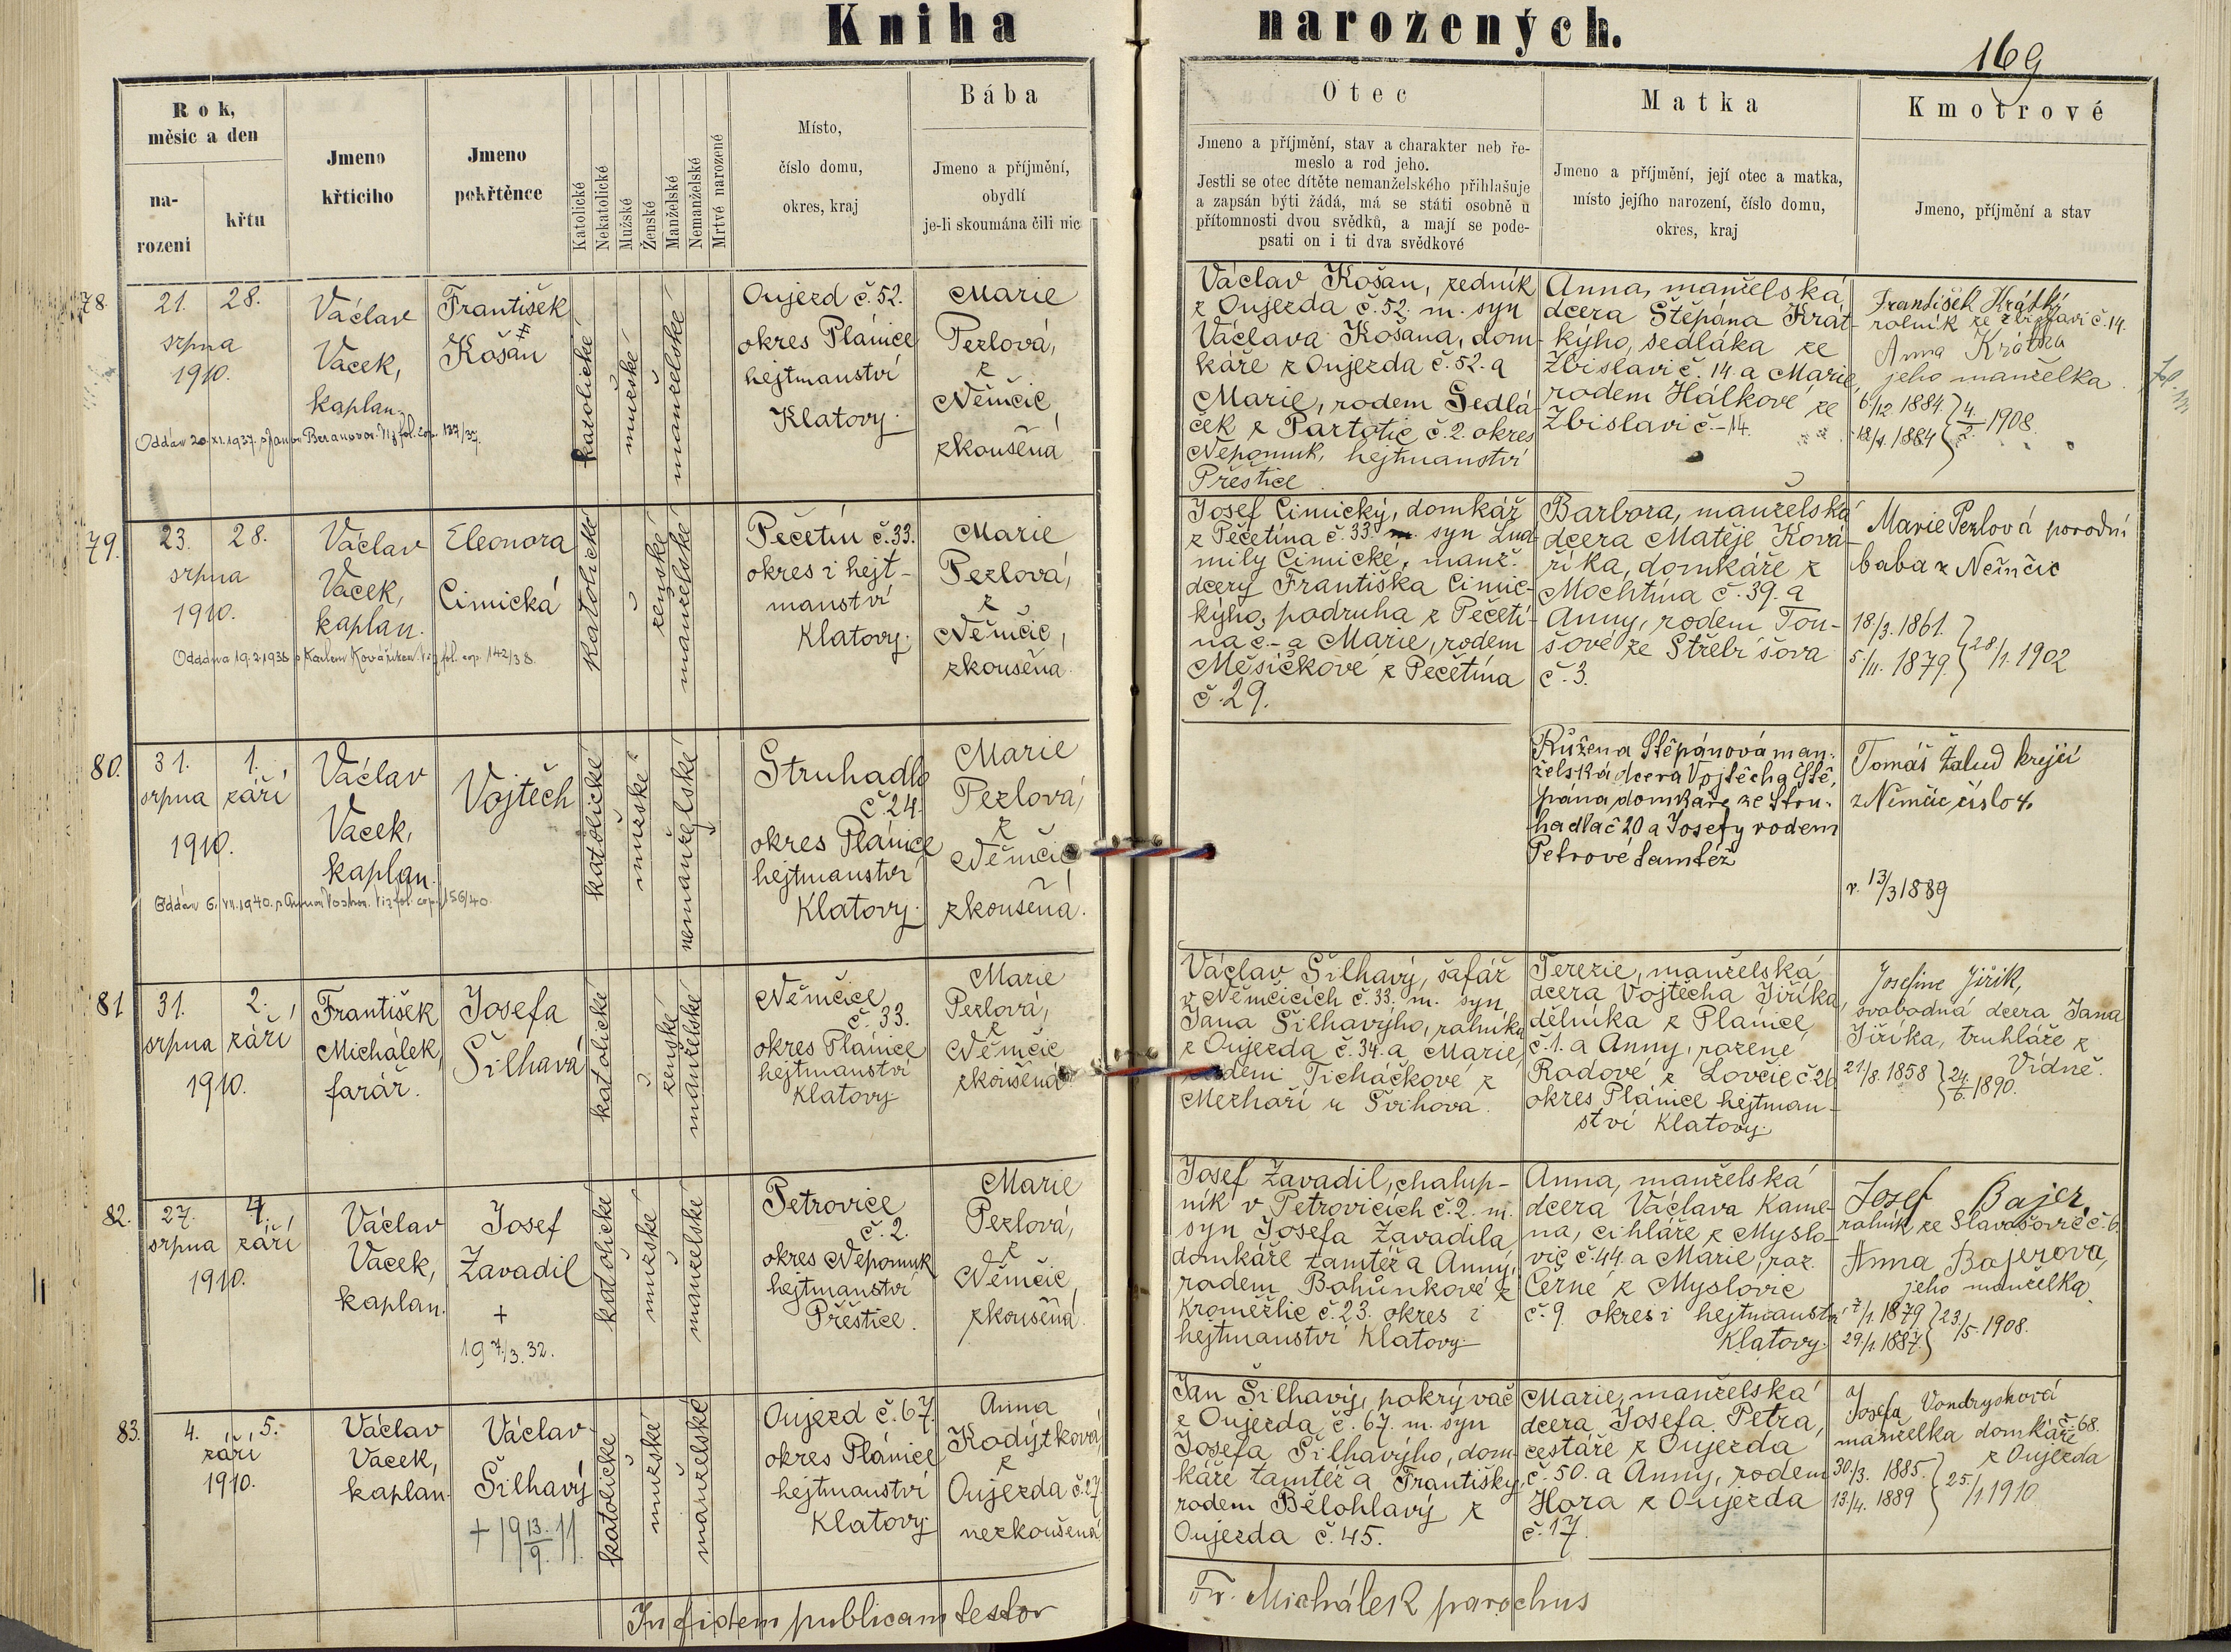 Kniha narozených.
169
Rok, měsíc a den
narození
křtu
Jmeno křtícího
Jmeno pokřtěnce
Katolické
Nekatolické
Mužské
Ženské
Manželské
Nemanželské
Mrtvé narozené
Místo,
číslo domu,
okres, kraj
Bába
Jmeno a příjmění,
obydlí
je-li skoumána čili nic
Otec
Jmeno a příjmění, stav a charakter neb ře-
meslo a rod jeho.
Jestli se otec dítěte nemanželského přihlašuje
a zapsán býti žádá, má se státi osobně u
přítomnosti dvou svědků, a mají se pode-
psati on i ti dva svědkové
Matka
Jmeno a příjmění, její otec a matka,
místo jejího narození, číslo domu,
okres, kraj
Kmotrové
Jmeno, příjmění a stav
78.
21.
28.
srpna
1910.
Václav
Vacek,
kaplan.
František
Košan
katolické
mužské
manželské
Oujezd č. 52.
okres Plánice
hejtmanství
Klatovy.
Marie
Pezlová,
z
Němčic,
zkoušená
Oddán 20.XI.1937. s Janou Beranovou. Viz fol. cop. 137/37.
Václav Košan, zedník
z Oujezda č. 52. m. syn
Václava Košana, dom-
káře z Oujezda č. 52. a
Marie, rodem Sedlá-
ček z Partotic č. 2. okres
Nepomuk, hejtmanství
Přeštice.
Anna, manželská
dcera Štěpána Krát-
kýho, sedláka ze
Zbislavi č. 14 a Marie,
rodem Hálkové ze
Zbislavi č. 14.
František Krátký
rolník ze Zbislavi č. 14.
Anna Krátká
jeho manželka
6/12. 1884. } 4./2. 1908.
18/4. 1884
79.
23.
28.
srpna
1910.
Václav
Vacek,
kaplan.
Eleonora
Cimická
katolické
ženské
manželské
Pečetín č. 33.
okres i hejt-
manství
Klatovy.
Marie
Pezlová,
z
Němčic,
zkoušena.
Oddána 19.2.1938 s Karlem Kovaříkem. Viz fol. cop. 142/38.
Josef Cimický, domkář
z Pečetína č. 33. m. syn Lud-
mily Cimické, manž.
dcery Františka Cimic-
kýho, podruha z Pečetí-
na č.- a Marie, rodem
Měsíčkové z Pečetína
č. 29.
Barbora, manželská
dcera Matěje Ková-
říka, domkáře z
Mochtína č. 39. a
Anny, rodem Tou-
šové ze Střebíšova
č. 3.
Marie Pezlová porodní
baba z Němčic
18/3. 1861. } 28/1. 1902
5./11. 1879.
80.
31.
1.
srpna září
1910.
Václav
Vacek,
kaplan.
Vojtěch
katolické
mužské
nemanželské
Struhadlo
č. 24.
okres Plánice
hejtmanství
Klatovy.
Marie
Pezlová,
z
Němčic,
zkoušená.
Oddán 6.VII.1940. s Annou Viz fol. cop. 156/40.
Růžena Štěpánová man-
želská dcera Vojtěcha Ště-
pána domkáře ze Stru-
hadla č 20 a Josefy rodem
Petrové tamtéž
Tomáš Žalud krejčí
z Němčic číslo 4.
n. 13/3 1889
81
31.
2.
srpna září
1910.
František
Michálek,
farář.
Josefa
Šilhavá
katolické
ženské
manželské
Němčice
č. 33.
okres Plánice
hejtmanství
Klatovy.
Marie
Pezlová,
z
Němčic
zkoušená
Václav Šilhavý, šafář
v Němčicích č. 33. m. syn
Jana Šilhavýho, rolníka
z Oujezda č. 34. a Marie,
rodem Ticháčkové z
Mezhoří u Švihova.
Terezie, manželská
dcera Vojtěcha Jiříka,
dělníka z Plánice
č. 1. a Anny, rozené
Radové z Lovčic č. 26
okres Plánice hejtman-
ství Klatovy.
Josefine Jiřik,
svobodná dcera Jana
Jiříka, truhláře z
Vídně.
21/8. 1858 } 24./6. 1890.
82.
27.
4.
srpna září
1910.
Václav
Vacek,
kaplan.
Josef
Zavadil
+
19 7/3. 32.
katolické
mužské
manželské
Petrovice
č. 2.
okres Nepomuk
hejtmanství
Přeštice.
Marie
Pezlová,
z
Němčic,
zkoušená.
Josef Zavadil, chalup-
ník v Petrovicích č. 2. m.
syn Josefa Zavadila,
domkáře tamtéž a Anny,
rodem Bohůnkové z
Kroměždic č. 23. okres i
hejtmanství Klatovy
Anna, manželská
dcera Václava Kame-
na, cihláře z Myslo-
vic č. 44. a Marie, roz.
Černé z Myslovic
č. 9. okres i hejtmanství
Klatovy.
Josef Bajer,
rolník ze Slavošovic č. 6.
Anna Bajerová,
jeho manželka
7/1. 1879 } 23/5. 1908.
29/1. 1887.
83.
4.
5.
září
1910.
Václav
Vacek,
kaplan.
Václav
Šilhavý
+ 19 13./9. 11.
katolické
mužské
manželské
Oujezd č. 67.
okres Plánice
hejtmanství
Klatovy
Anna
Kodýtková,
z
Oujezda č. 27
nezkoušená
Jan Šilhavý, pokrývač
z Oujezda č. 67. m. syn
Josefa Šilhavýho, dom-
káře tamtéž a Františky,
rodem Bělohlavý z
Oujezda č. 45.
Marie, manželská
dcera Josefa Petra,
cestáře z Oujezda
č. 50. a Anny, rodem
Hora z Oujezda
č. 17.
Josefa Vondrysková
manželka domkáře č. 68.
z Oujezda
30./3. 1885. } 25./1 1910
13./4. 1889
In fidem publicam testor
Fr. Michálek parochus